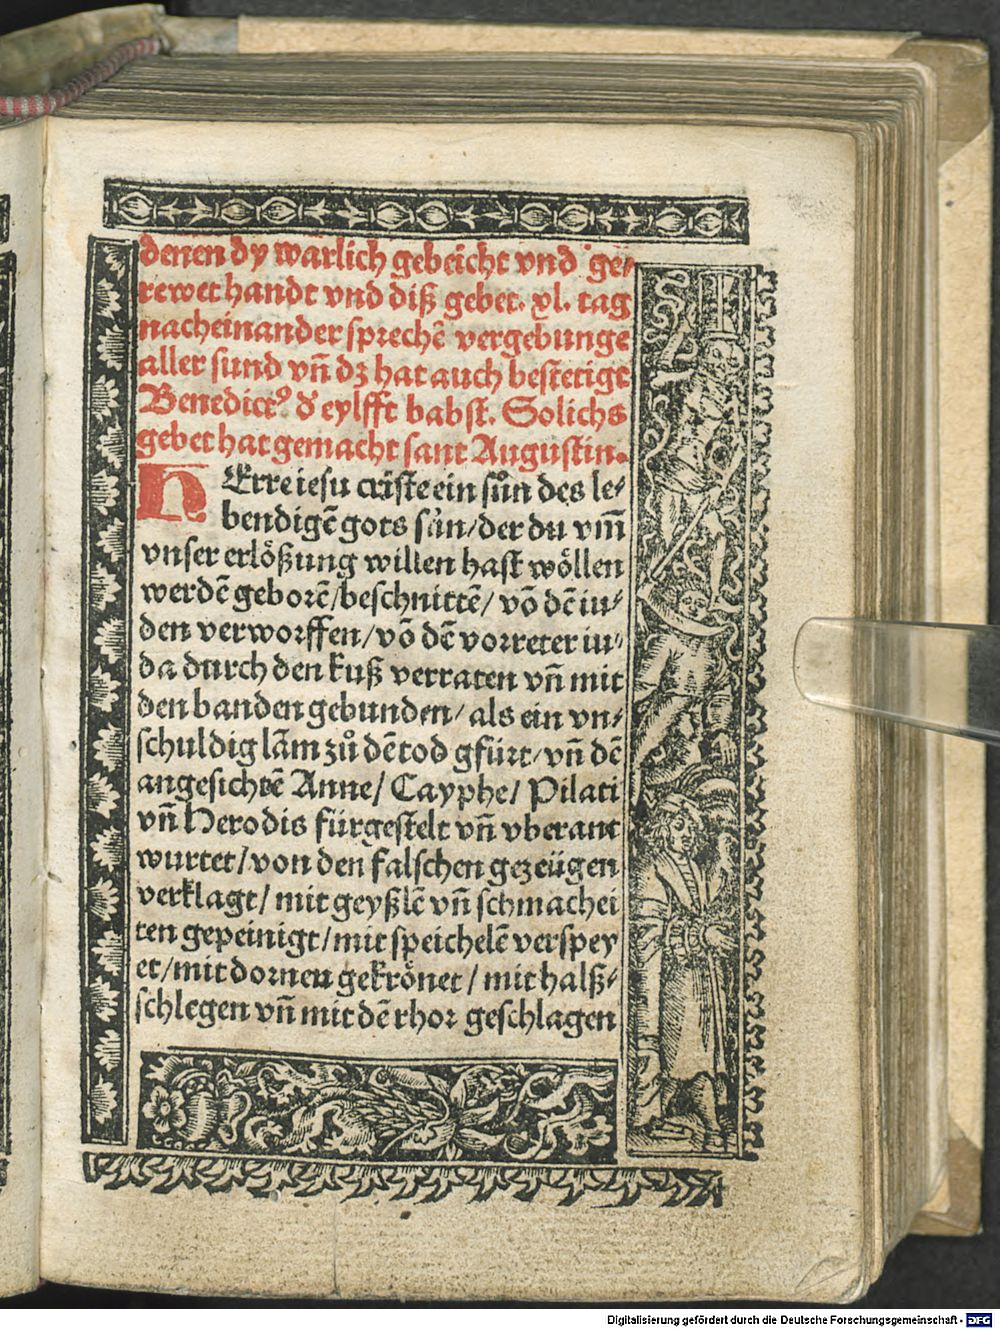 denen dy warlich gebeicht vnd ge⸗
rewet handt vnd diß gebet. xl. tag
nacheinander sprechē vergebunge
aller sund vñ dz hat auch bestetigt
Benedictꝰ d' eylfft babst. Solichs
gebet hat gemacht sant Augustin.
HErre iesu criste ein sůn des le⸗
bendigē gots sůn/der du vm̄
vnser erlößung willen hast wöllen
werdē geborē/beschnittē/ vō dē iu⸗
den verworffen/vō dē vorreter iu⸗
da durch den kuß verraten vñ mit
den banden gebunden/ als ein vn⸗
schuldig lām zů dē tod gfürt/vñ dē
angesichtē Anne/ Cayphe/ Pilati
vñ Herodis fürgestelt vñ vberant
wurtet/von den falschen gezeügen
verklagt/ mit geyßlē vñ schmachei
ten gepeinigt/mit speichelē verspey
et/mit dornen gekrönet/ mit halß⸗
schlegen vñ mit dē rhor geschlagen
Digitalisierung gefördert durch die Deutsche Forschungsgemeinschaft - DFG